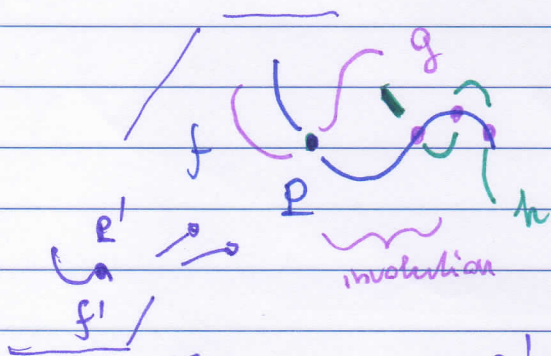 g
f
P
h
P'
involution
f'